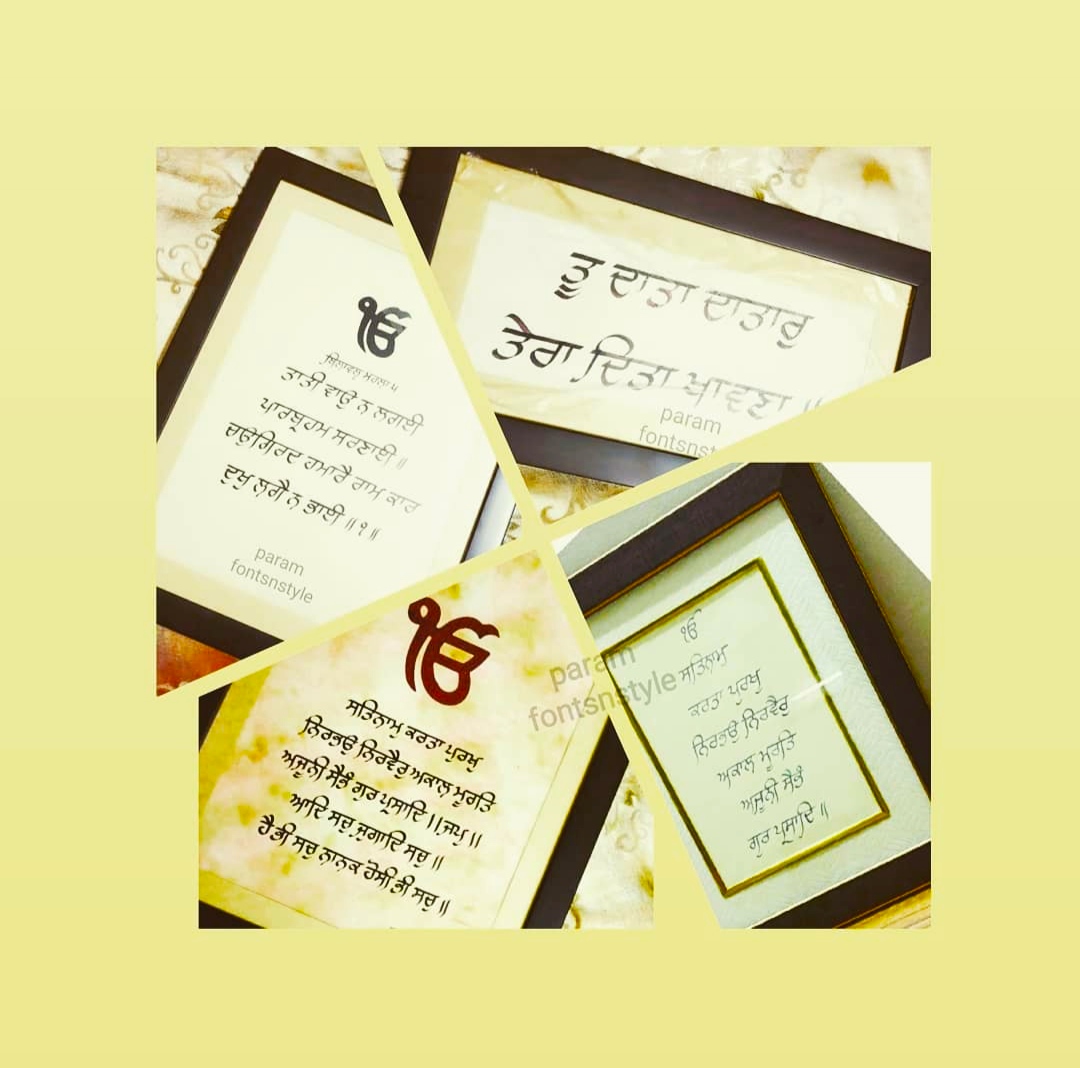 ੴ
ਬਿਲਾਵਲੁ ਮਹਲਾ ੫
ਤਾਤੀ ਵਾਉ ਨ ਲਗਈ
ਪਾਰਬ੍ਰਹਮ ਸਰਣਾਈ ॥
ਚਉਗਿਰਦ ਹਮਾਰੈ ਰਾਮ ਕਾਰ
ਦੁਖੁ ਲਗੈ ਨ ਭਾਈ ॥੧॥
param
fontsnstyle
ਤੂ ਦਾਤਾ ਦਾਤਾਰੁ
ਤੇਰਾ ਦਿਤਾ ਖਾਵਣਾ ॥
param
fontsnst
ੴ
ਸਤਿਨਾਮੁ ਕਰਤਾ ਪੁਰਖੁ
ਨਿਰਭਉ ਨਿਰਵੈਰੁ ਅਕਾਲ ਮੂਰਤਿ
ਅਜੂਨੀ ਸੈਭੰ ਗੁਰ ਪ੍ਰਸਾਦਿ ॥ਜਪੁ॥
ਆਦਿ ਸਚੁ ਜੁਗਾਦਿ ਸਚੁ ॥
ਹੈ ਭੀ ਸਚੁ ਨਾਨਕ ਹੋਸੀ ਭੀ ਸਚੁ ॥
param
fontsnstyle
ੴ
ਸਤਿਨਾਮੁ
ਕਰਤਾ ਪੁਰਖੁ
ਨਿਰਭਉ ਨਿਰਵੈਰੁ
ਅਕਾਲ ਮੂਰਤਿ
ਅਜੂਨੀ ਸੈਭੰ
ਗੁਰ ਪ੍ਰਸਾਦਿ ॥